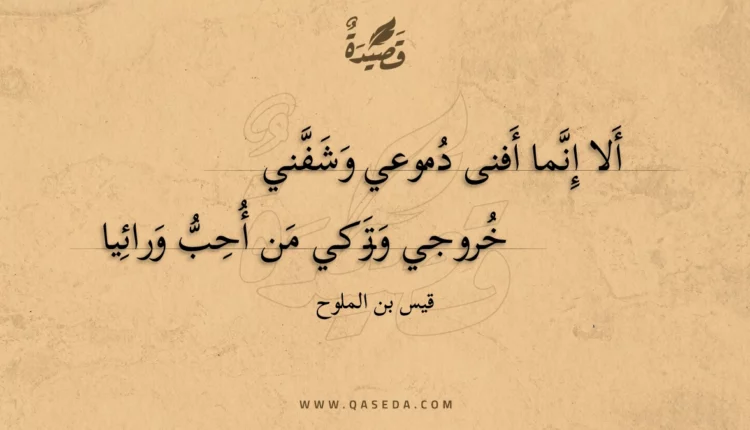 قَصِيدَةٌ
أَلا إِنَّما أَفنى دُموعي وَشَفَّني
خُروجي وَتَركي مَن أُحِبُّ وَرائِيا
قيس بن الملوح
WWW.QASEDA.COM